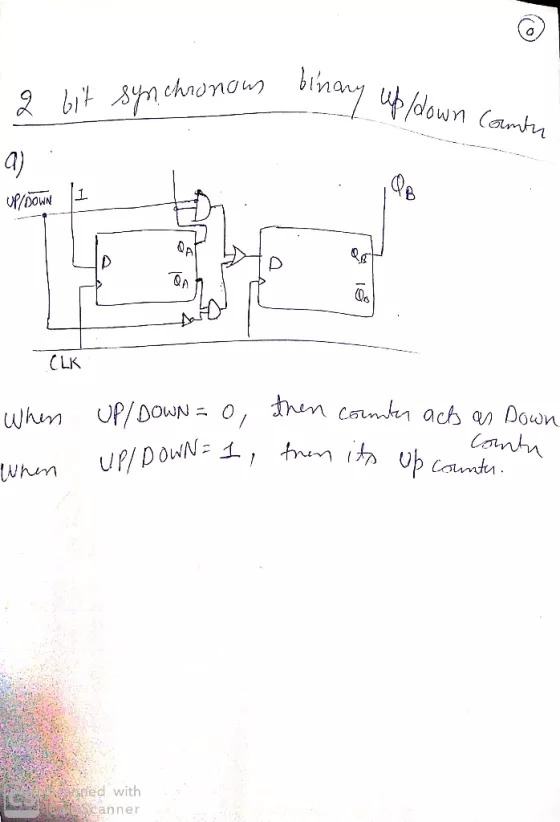 0
2 bit synchronous binary up/down counter
a)
UP/D̅O̅W̅N̅ 1
Q_B
D Q_A
Q̅_A
D Q_B
Q̅_B
CLK
When UP/DOWN = 0, then counter acts as Down counter
When UP/DOWN = 1, then its up counter.
CS Scanned with
CamScanner